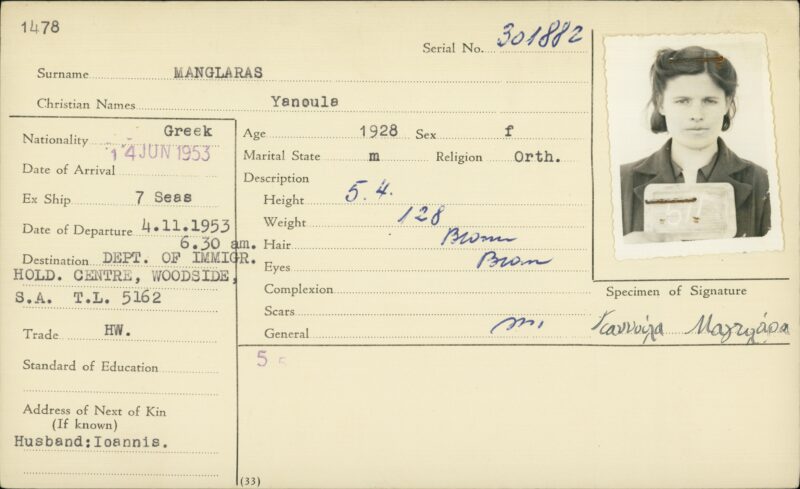 1478
Serial No. 301882
Surname MANGLARAS
Christian Names Yanoula
Nationality Greek
Date of Arrival 14 JUN 1953
Ex Ship 7 Seas
Date of Departure 4.11.1953
6.30 am.
Destination DEPT. OF IMMIGR.
HOLD. CENTRE, WOODSIDE,
S.A. T.L. 5162
Trade HW.
Standard of Education
Address of Next of Kin
(If known)
Husband:Ioannis.
Age 1928 Sex f
Marital State m Religion Orth.
Description
Height 5.4.
Weight 128
Hair Brown
Eyes Brown
Complexion
Scars
General
5
(33)
Specimen of Signature